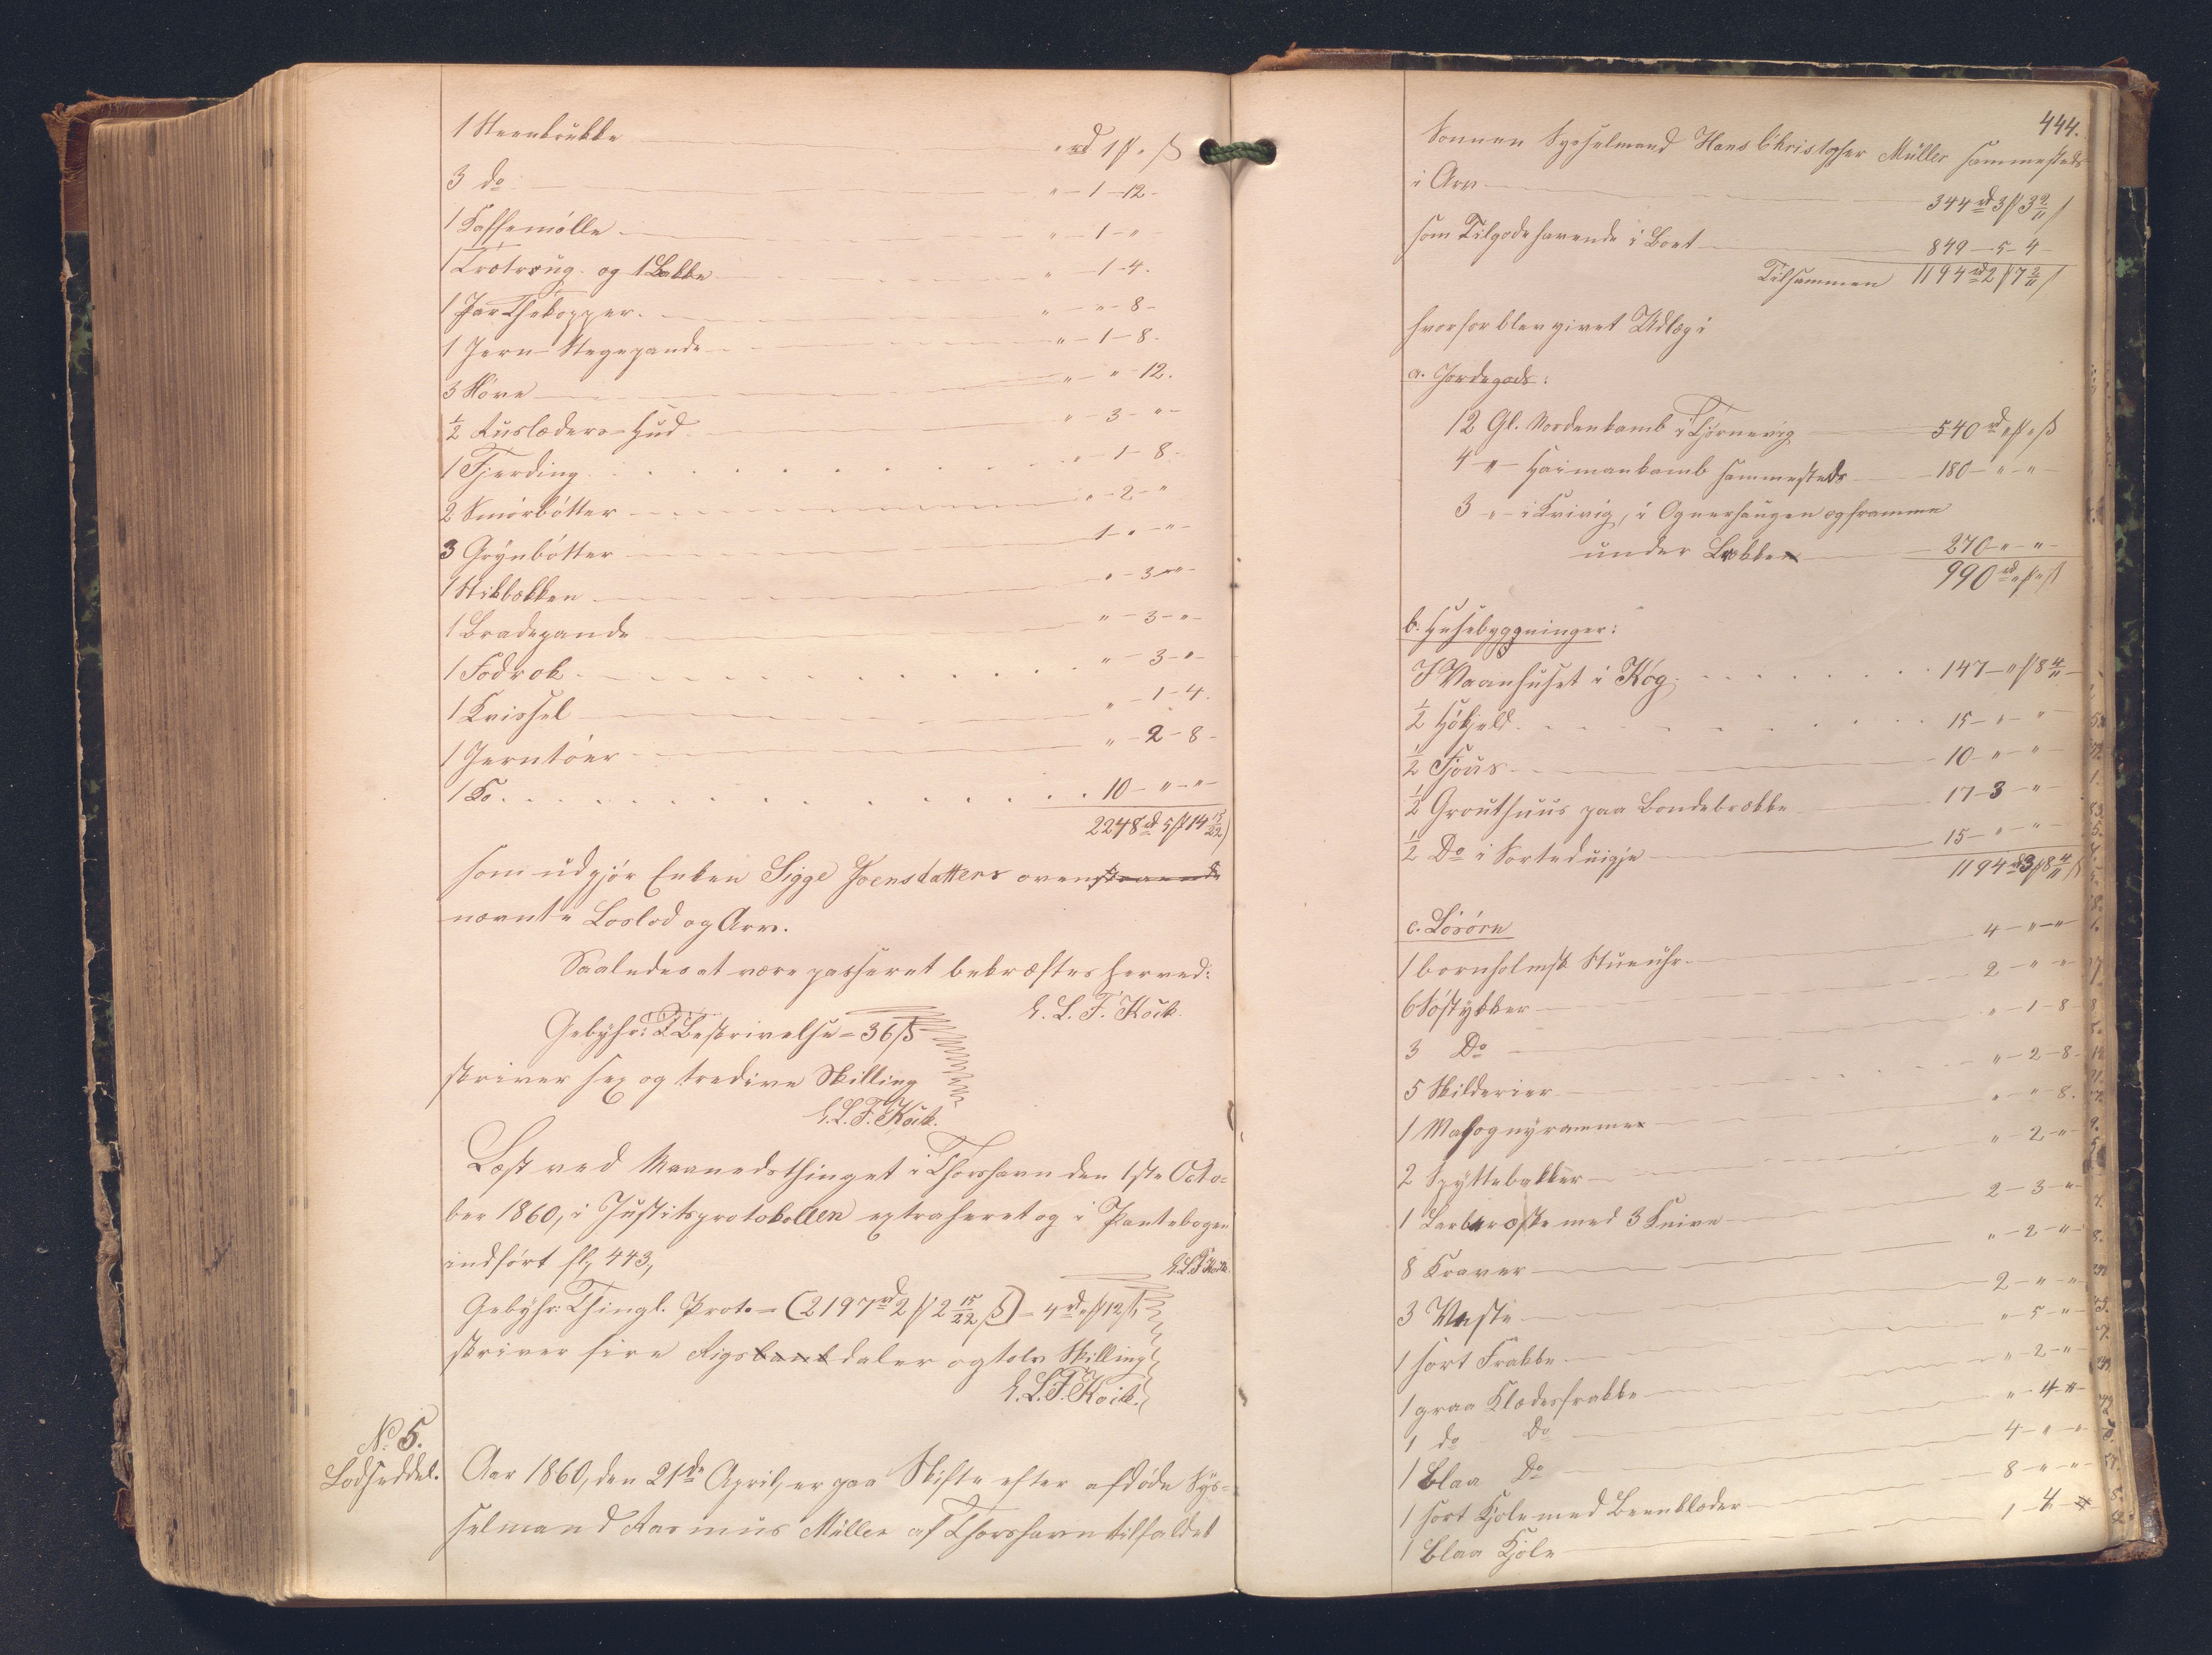 1 Steenkrukke " rd 1 ß " ß
3 do " - 1 - 12 -
1 Kaffemølle " - 1 - " -
1 Trætrug og 1 Bakke " 1 - 4.
1 Par Thekopper. " - " - 8 -
1 Jern-Stegepande " - 1 - 8.
3 " - " - 12.
1/2 Hud " - 3 - " -
1 Fjerding " - 1 - 8.
2 Smørbøtter " - 2 - "
3 Grynbøtter 1 - " - " -
1 Stikbækken " - 3 - " -
1 Bradepande " - 3 - " -
1 Fodrok " - 3 - " -
1 " - 1 - 4.
1 " - 2 - 8 -
1 Ko 10 - " - " -
2248 rd 5 ß 14 15/22 ß
som udgjør Enken Sigge Joensdatters ovenstaaende
nævnte Boslod og Arv.
Saaledes at være passeret bekræftes herved:
E. L. F. Kock.
Gebyhr: Beskrivelse = 36 ß
skriver sex og tredive Skilling
E. L. F. Kock.
Læst ved Maanedsthinget i Thorshavn den 1ste Octo=
ber 1860, i Justitsprotokollen extraheret og i Pantebogen
indført fl, 443,
E. L. F. Kock.
Gebyhr: Thingl. Prot. = (2197 rd 2 ß 2 15/22 ß) = 4 rd " ß 12 ß,
skriver fire Rigsbankdaler og tolv Skilling
E. L. F. Kock.
No. 5.
Lodseddel.
Aar 1860, den 21de April, er paa Skifte efter afdøde Sys=
selmand Rasmus Müller af Thorshavn tilfaldet
444.
Sønnen Sysselmand Hans Christopher Müller sammesteds
i Arv 344 rd 3 ß 3 9/11 ß
som Tilgodehavende i Boet 849 - 5 - 4 -
Tilsammen 1194 rd 2 ß 7 2/11 ß
hvorfor blev givet Udlæg i
a. Jordegods:
12 Gl. Nordenkamb i Tjørnevig 540 rd " ß " ß
4 - " - Haimankamb sammesteds 180 - " - " -
3 - " - i Kvivig, i Ognerhaugen og framme
under Bakken 270 - " - " -
990 rd " ß " ß
b. Husebygninger:
I Vaanhuset i Køg 147 - " ß 8 4/11 -
1/2 Høkjeld 15 - " - "
1/2 Fjøus 10 - " - " -
1/2 Grouthuus paa Bondebrække 17 - 3 - " -
1/2 Do i Sorteduigje 15 - " - " -
1194 rd 3 ß 8 4/11 ß
c. Løsøre
1 bornholmsk Stueuhr 4 - " - " -
6 Søstykker 2 - " - " -
3 Do " - 1 - 8
5 Skilderier " - 2 - 8 -
1 Mahognyramme " - " - 8.
2 Spyttebakker " - 2 - " -
1 Barberæske med 3 Knive 2 - 3 - " -
8 Kraver " - 2 - " -
3 Veste 2 - " - "
1 sort Frakke " - 5 - " -
1 graa Klædesfrakke " - 2 - " -
1 do Do " - 4 - " -
1 Blaa Do 4 - " - " -
1 sort Kjole med Beenklæder 8 - " - " -
1 blaa Kjole 1 - 4 - "